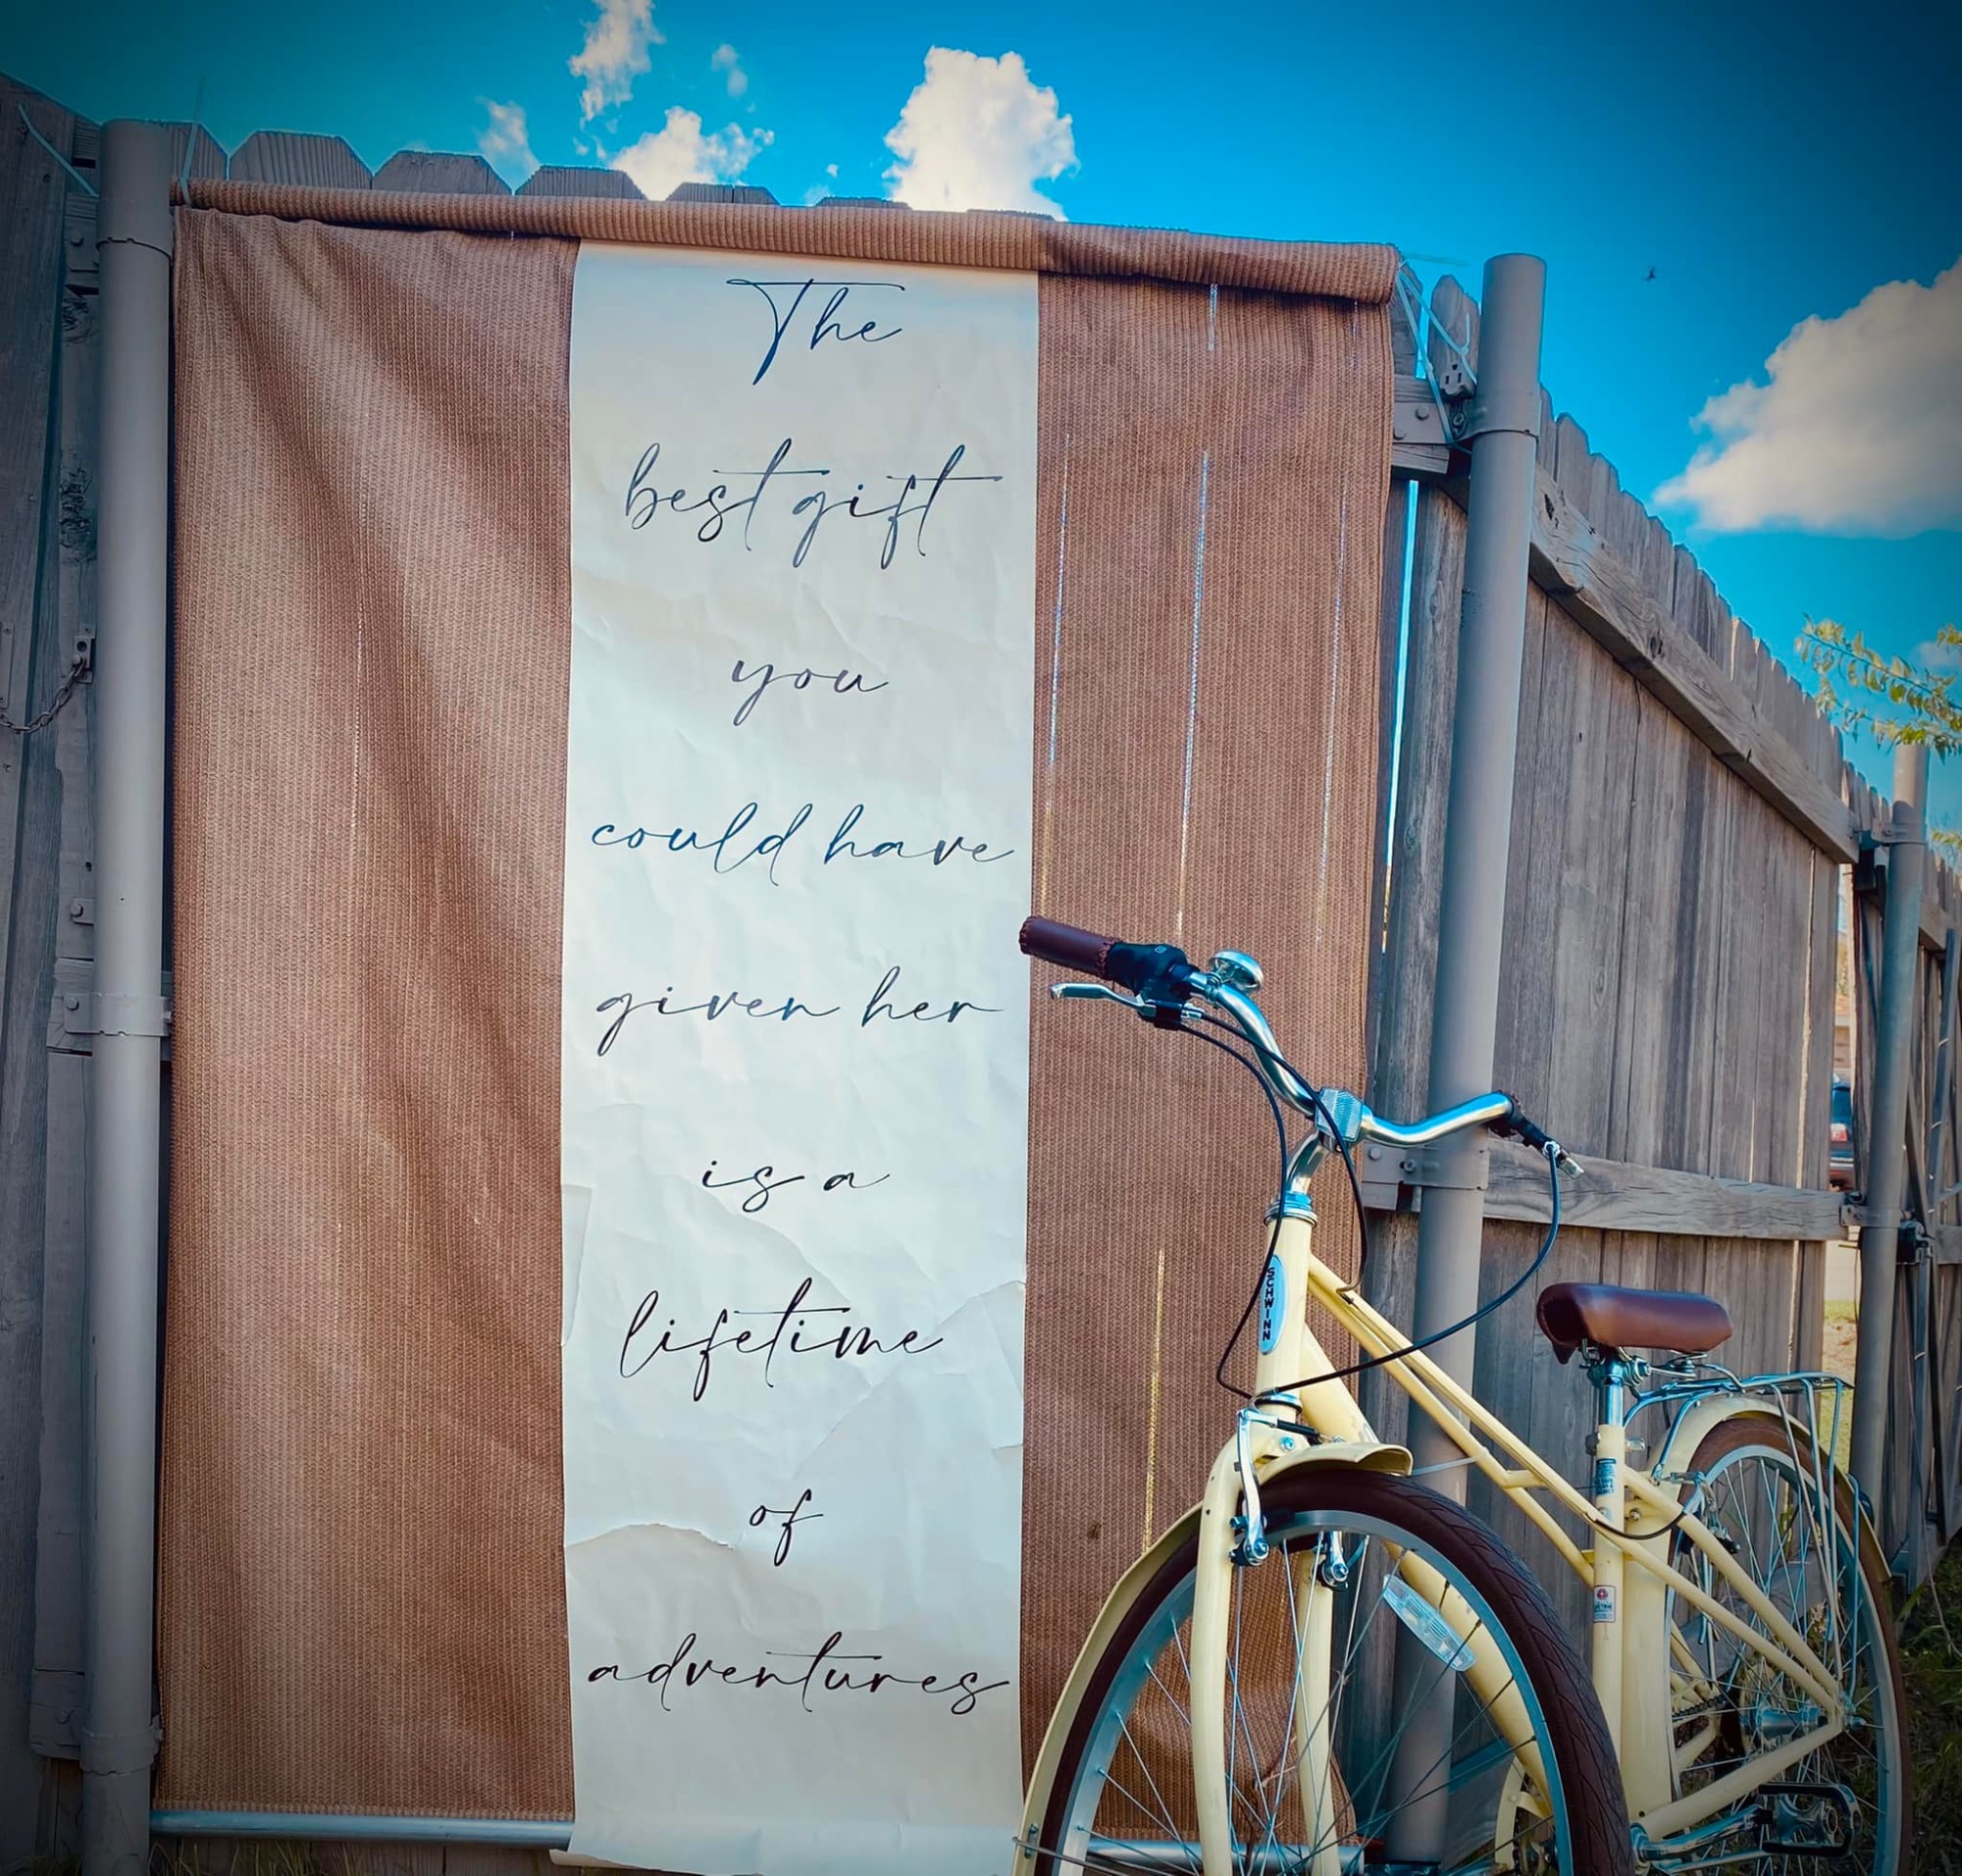 The
best gift
you
could have
given her
is a
lifetime
of
adventures
SCHWINN